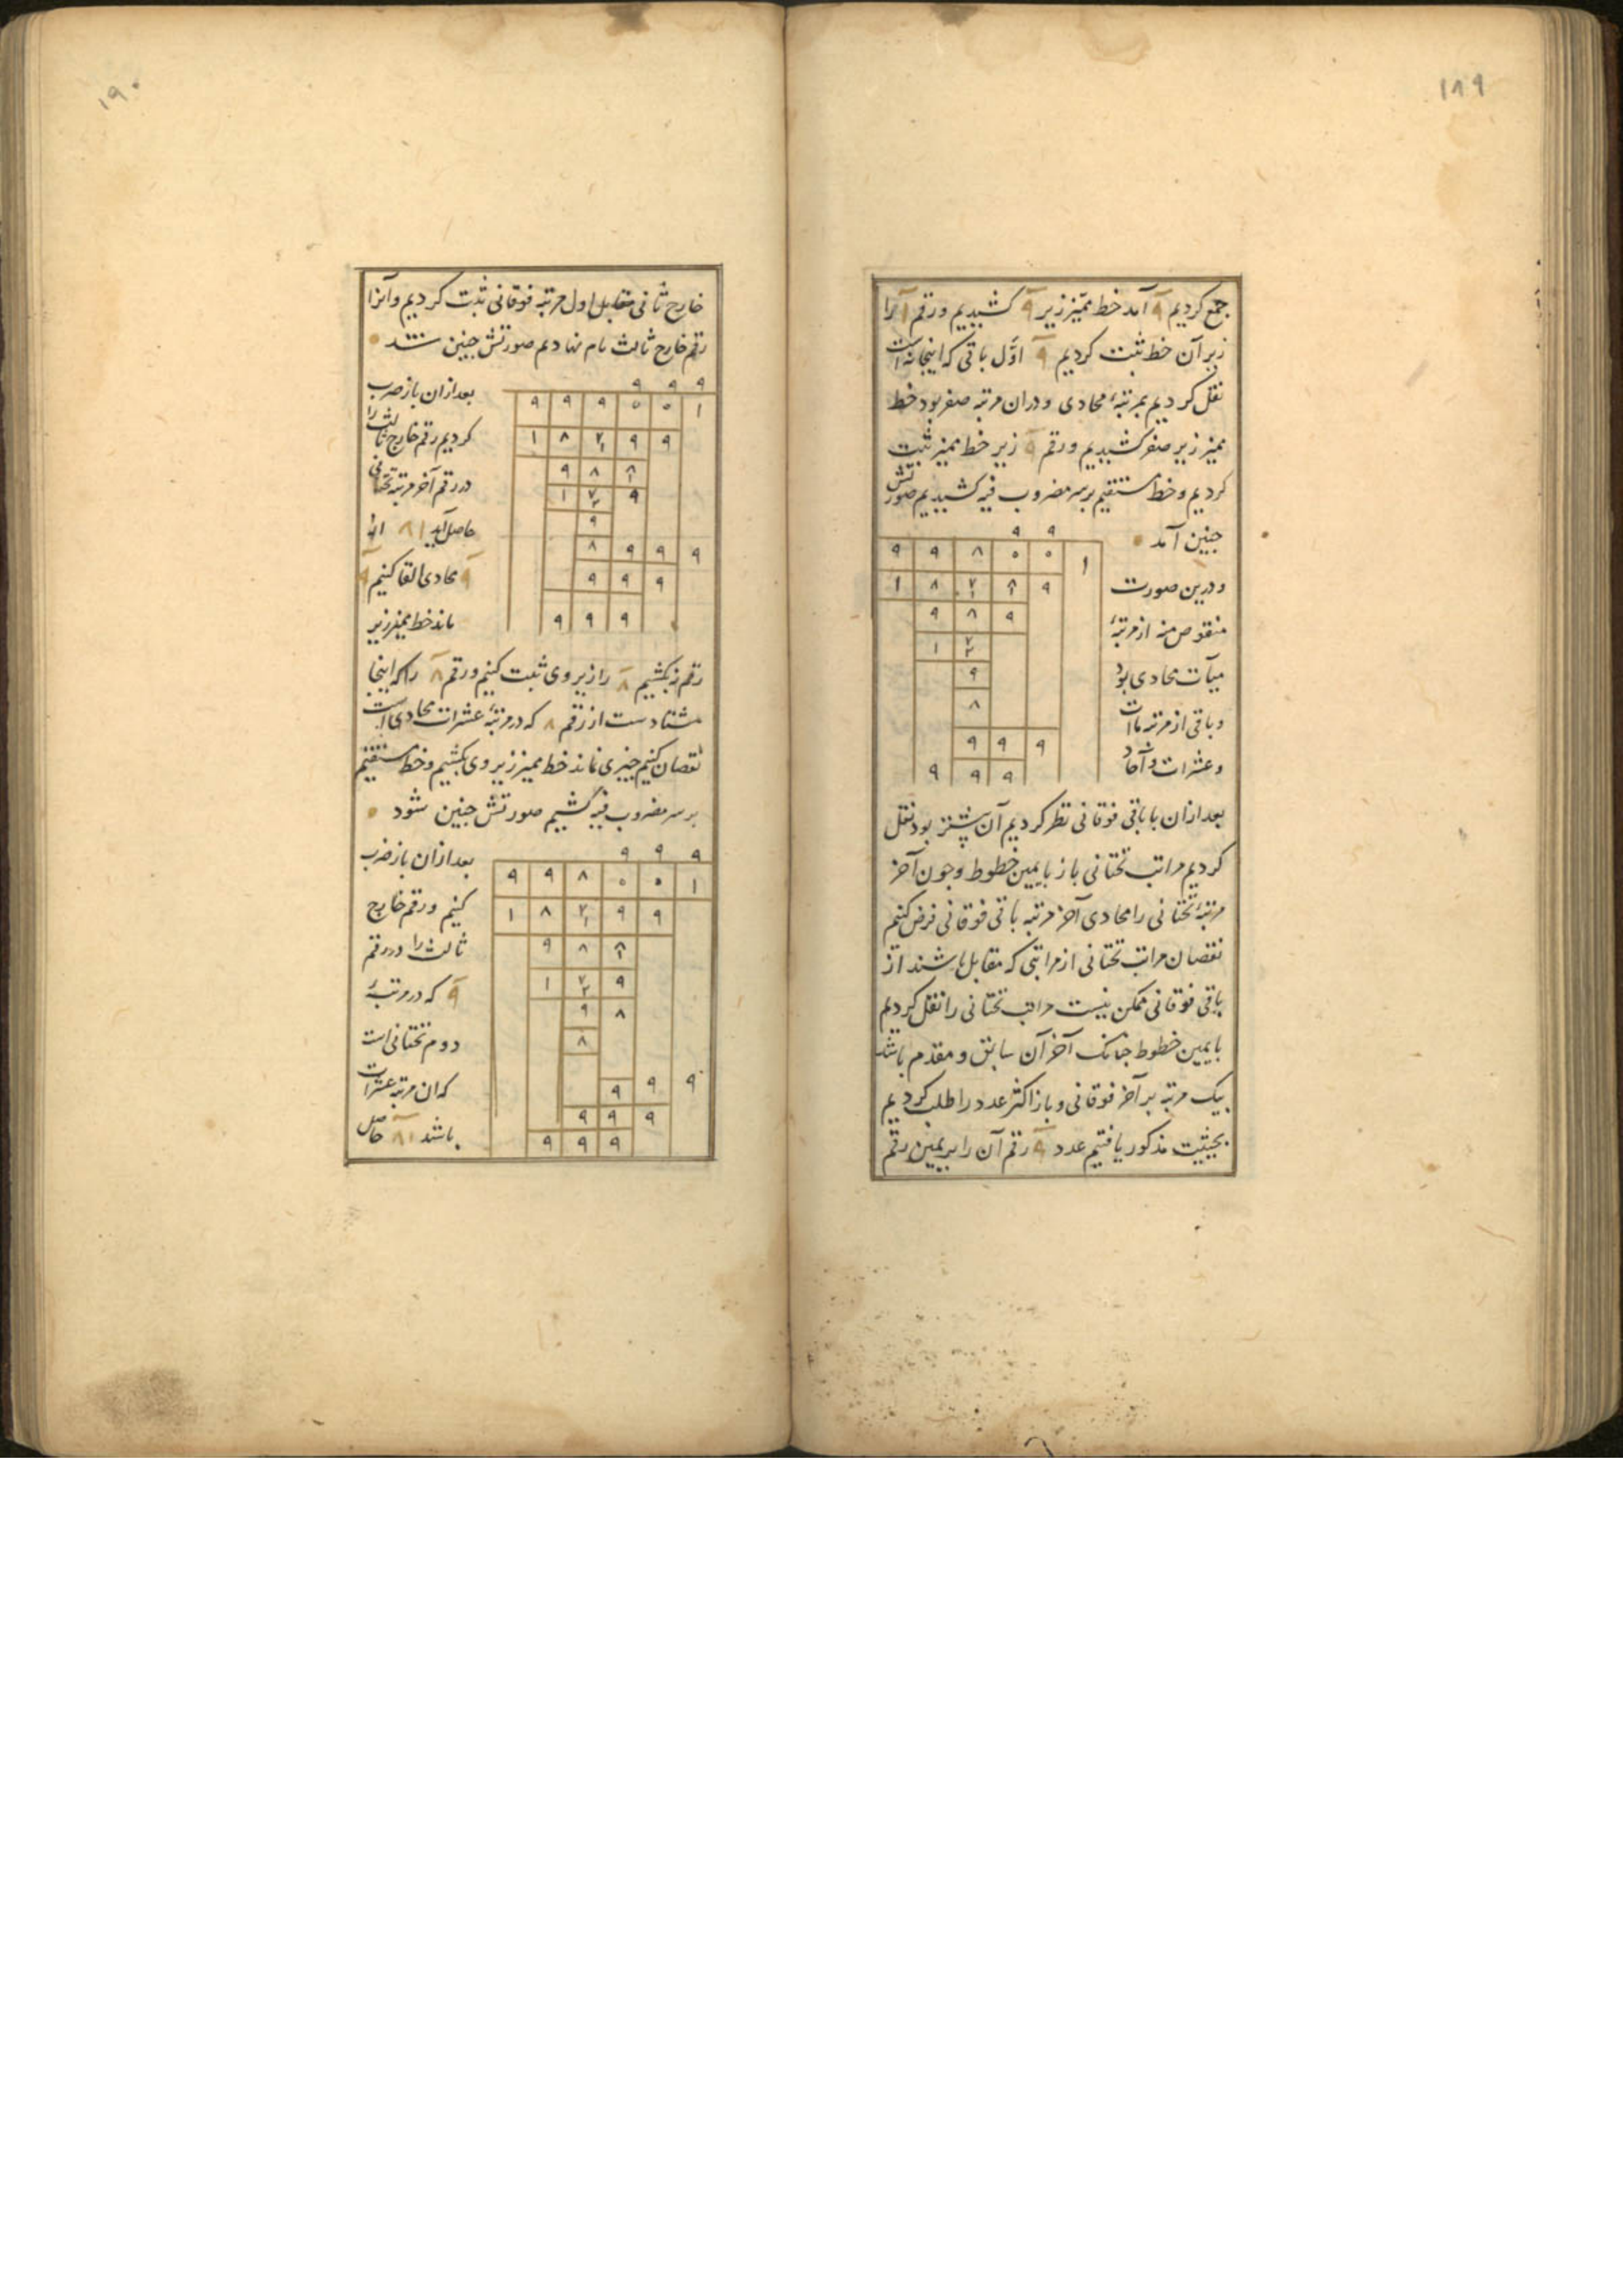 ۱۸۹
جمع کردیم ۹ آمد خط ممیز زیر ۹ کشیدیم و رقم ۱ را
زیر آن خط ثبت کردیم ۹ اوّل باقی که اینجا نه است
نقل کردیم بمرتبهٔ محاذی و دران مرتبه صفر بود خط
ممیز زیر صفر کشیدیم و رقم ۹ زیر خط ممیز ثبت
کردیم و خط مستقیم بر سر مضروب فیه کشیدیم صورتش
چنین آمد
۹ ۹
۹ ۹ ۸ ۰ ۰ ۱
۱ ۸ ۷ ۱ ۸ ۱ ۹
۹ ۸ ۹
۱ ۷ ۲
۹
۸
۹ ۹ ۹
۹ ۹ ۹
و درین صورت
منقوص منه از مرتبهٔ
میآت محاذی بود
و باقی از مرتبه مات
و عشرات و آحاد
بعد ازان با باقی فوقانی نظر کردیم آن پیشتر بود نقل
کردیم مراتب تحتانی باز بایمین خطوط و چون آخر
مرتبهٔ تحتانی را محاذی آخر مرتبه باقی فوقانی فرض کنیم
نقصان مراتب تحتانی از مراتبی که مقابل باشند از
باقی فوقانی ممکن نیست مراتب تحتانی را نقل کردیم
بایمین خطوط چنانک آخر آن سابق و مقدم باشد
بیک مرتبه بر آخر فوقانی و باز اکثر عدد را طلب کردیم
بحیثیت مذکور یافتیم عدد ۹ رقم آن را بر یمین رقم
۱۹۰
خارج ثانی مقابل اول مرتبه فوقانی ثبت کردیم و آنرا
رقم خارج ثالث نام نهادیم صورتش چنین شد
بعد ازان باز ضرب
کردیم رقم خارج ثالث را
در رقم آخر مرتبه تحتانی
حاصل آید ۸۱
۹ محاذی القا کنیم ۹
ماند خط ممیز زیر
۹ ۹ ۹
۹ ۹ ۹ ۰ ۰ ۱
۱ ۸ ۷ ۱ ۹ ۹
۹ ۸ ۸ ۱
۱ ۷ ۲ ۹
۹
۸ ۹ ۹ ۹
۹ ۹ ۹
۹ ۹ ۹
رقم بکشیم ۸ را زیر وی ثبت کنیم و رقم ۸ را که اینجا
هشتادست از رقم ۸ که در مرتبهٔ عشرات محاذی است
نقصان کنیم چیزی نماند خط ممیز زیر وی بکشیم و خط مستقیم
بر سر مضروب فیه کشیم صورتش چنین شود
بعد ازان باز ضرب
کنیم و رقم خارج
ثالث را در رقم
۹ که در مرتبهٔ
دوم تحتانی است
که ان مرتبه عشرات
باشد ۸۱ حاصل
۹ ۹ ۹
۹ ۹ ۸ ۰ ۰ ۱
۱ ۸ ۷ ۱ ۹ ۹
۹ ۸ ۸ ۱
۱ ۷ ۲ ۹
۹ ۸
۸
۹ ۹ ۹
۹ ۹ ۹
۹ ۹ ۹